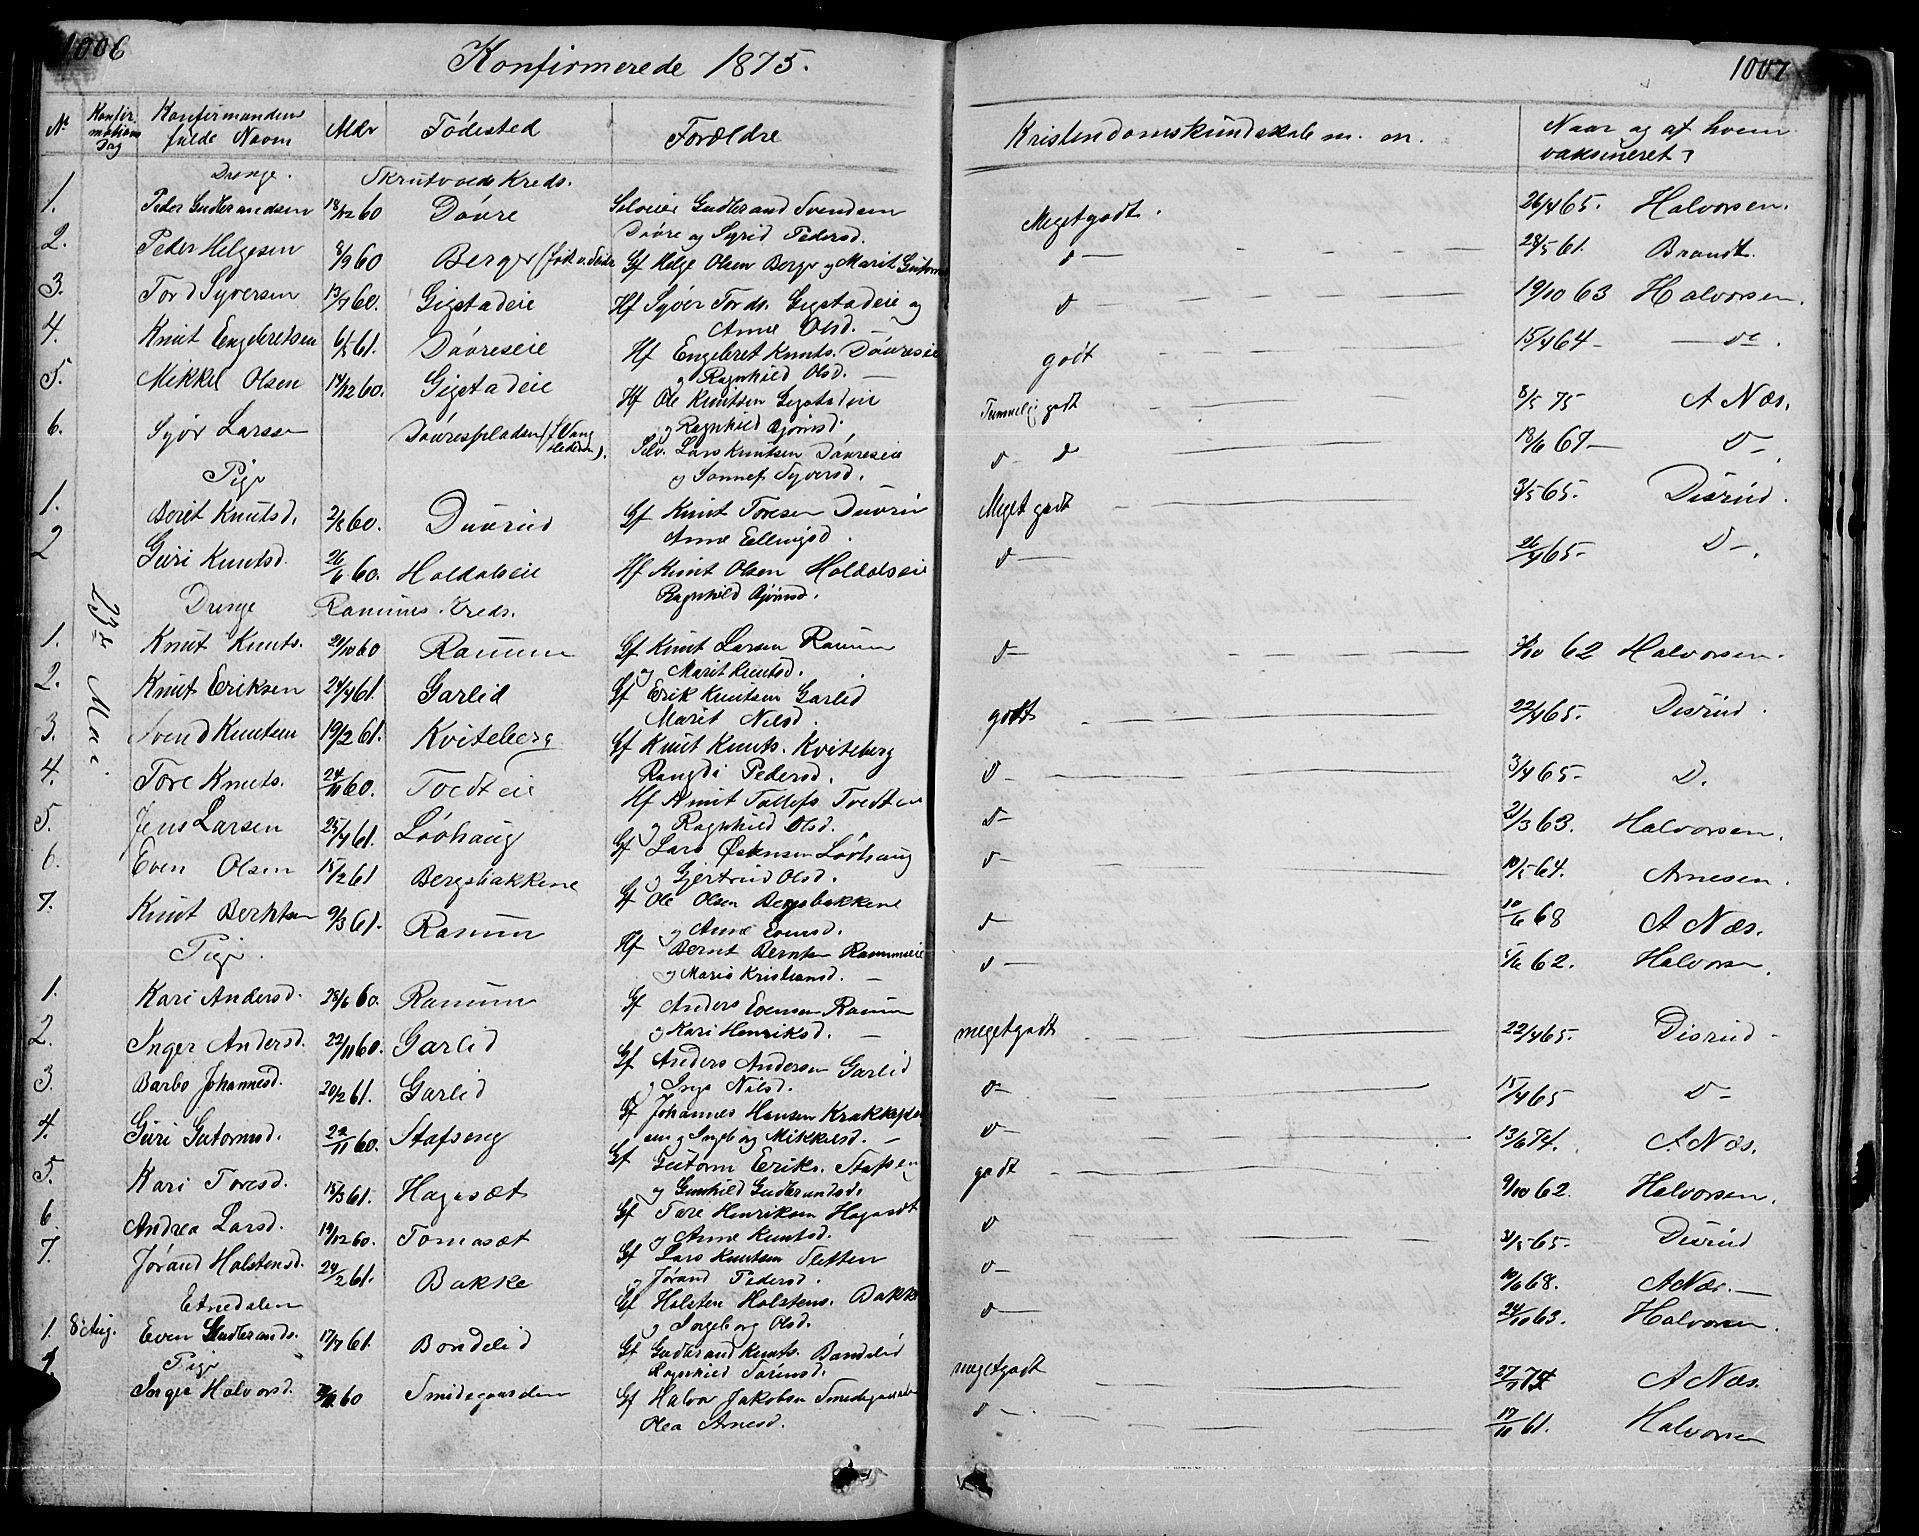 1006
Konfirmerede 1875.
1007
No Konfirmations Dag Konfirmandens fulde Navn Alder Fødested Forældre Kristendomskundskab m. m. Naar og af hvem vaksineret?
Drenge. Skrutvolds Kreds.
1. Peder Gudbrandsen 18/12 60 Døvre Selveier Gudbrand Svendsen Døvre og Sigrid Pedersd. Meget godt. 26/4 65. Halvorsen.
2. Peder Helgesen 8/9 60 Berger Gf Helge Olsen Berge og Marit Guttorm d— 28/5 61. Brandt.
3. Tord Syversen 13/7 60. Gigstadeie Hf Syver Tords. Gigstadeie og Anne Olsd. — d 19/10 63 Halvorsen.
4. Knut Engebretsen 6/5 61. Døvreseie Hf Engebret Knuts. Døvreseie og Ragnhild Olsd. — godt 15/4 64 — do.
5. Mikkel Olsen 14/12 60. Gigstadeie Hf Ole Knutsen Gigstadeie og Ragnhild Bjørnsd. Temmelig godt 8/5 75 A Næs.
6. Syver Larsen Døvrespladsen Selv. Lars Knutsen Døvreseie og Sønnef Syversd. d— d 12/6 67— D—
Pige
1. Beret Knutsd. 2/8 60. Duvrud Gf Knut Toresen Duvru Anne Ellingsd. Meget godt 3/5 65. Disrud.
2 Guri Knutsd. 26/6 60. Holdalseie Hf Knut Olsen Holdalseie Ragnhild Bjørnsd. d— 26/4 65— D—.
23de Mai.
Drenge Ranums Kreds.
1. Knut Knuts. 21/10 60 Ranum Gf Knut Larsen Ranum og Marit Knutsd. d— 3/10 62 Halvorsen.
2. Knut Eriksen 24/4 61. Garlid Gf Erik Knutsen Garlid Marit Nilsd. godt 22/4 65. Disrud.
3. Svend Knutsen 19/2 61. Kviteberg Gf Knut Knuts. Kviteberg Rangdi Pedersd. D— 3/4 65— D.
4. Tore Knuts. 24/11 60. Tvedteie Hf Knut Tollefs Tvedteie og Ragnhild Olsd. d— 21/3 63. Halvorsen.
5. Jens Larsen 25/4 61. Løvhaug Gf Lars Østensen Løvhaug og Gjertrud Olsd. d— 10/5 64. Arnesen.
6. Even Olsen 15/2 61 Bergsbakkene Gf Ole Olsen Bergsbakkene og Anne Evensd. d— 10/6 68 A Næs.
7. Knut Berntsen 9/3 61. Ranum Hf Bernt Berntsen Ranumseie og Maria Kristiansd. — d— 5/6 62. Halvorsen.
Pige.
1. Kari Andersd. 28/6 60. Ranum Gf Anders Evensen Ranum og Kari Henriksd. — meget godt 22/4 65. Disrud—
2. Inger Andersd. 22/11 60. Garlid Gf Anders Andersen Garlid og Inga Nilsd. d— 15/4 65 D—
3. Barbo Johannesd. 20/2 61. Garlid Gf Johannes Hansen og Ingeborg Mikkelsd. — d— 13/6 74. A Næs.
4. Guri Gutormsd. 22/11 60. Stafseng Gf Gutorm Eriks. Stafsen og Gunhild Gudbrandsd. godt 9/10 62. Halvorsen.
5. Kari Toresd. 15/3 61. Hagasæt Gf Tore Henriksen Hagasæt og Anne Knutsd. d 31/5 65— Disrud
6. Andrea Larsd. 19/12 60. Tomasæt Gf Lars Knutsen Sletten og Jørand Pedersd. d— 10/6 68. A Næs.—
7. Jørand Holstensd. 24/2 61. Bakke Gf Holsten Holstens. Bakke og Ingeborg Olsd. d— 24/10 63. Halvorsen.
Etnedalen
1. 8 Aug. Even Gudbrands. 17/7 61. Bondelid Gf Gudbrand Knuts. Bondelid Ragnhild Torensd. meget godt 27/7 74 A Næs.
Pige
1. Inger Halvorsd. 60 Smidegaarden Gf Halvor Jakobsen Smedegaarden Olea Arnesd. d— 17/10 61. Halvorsen